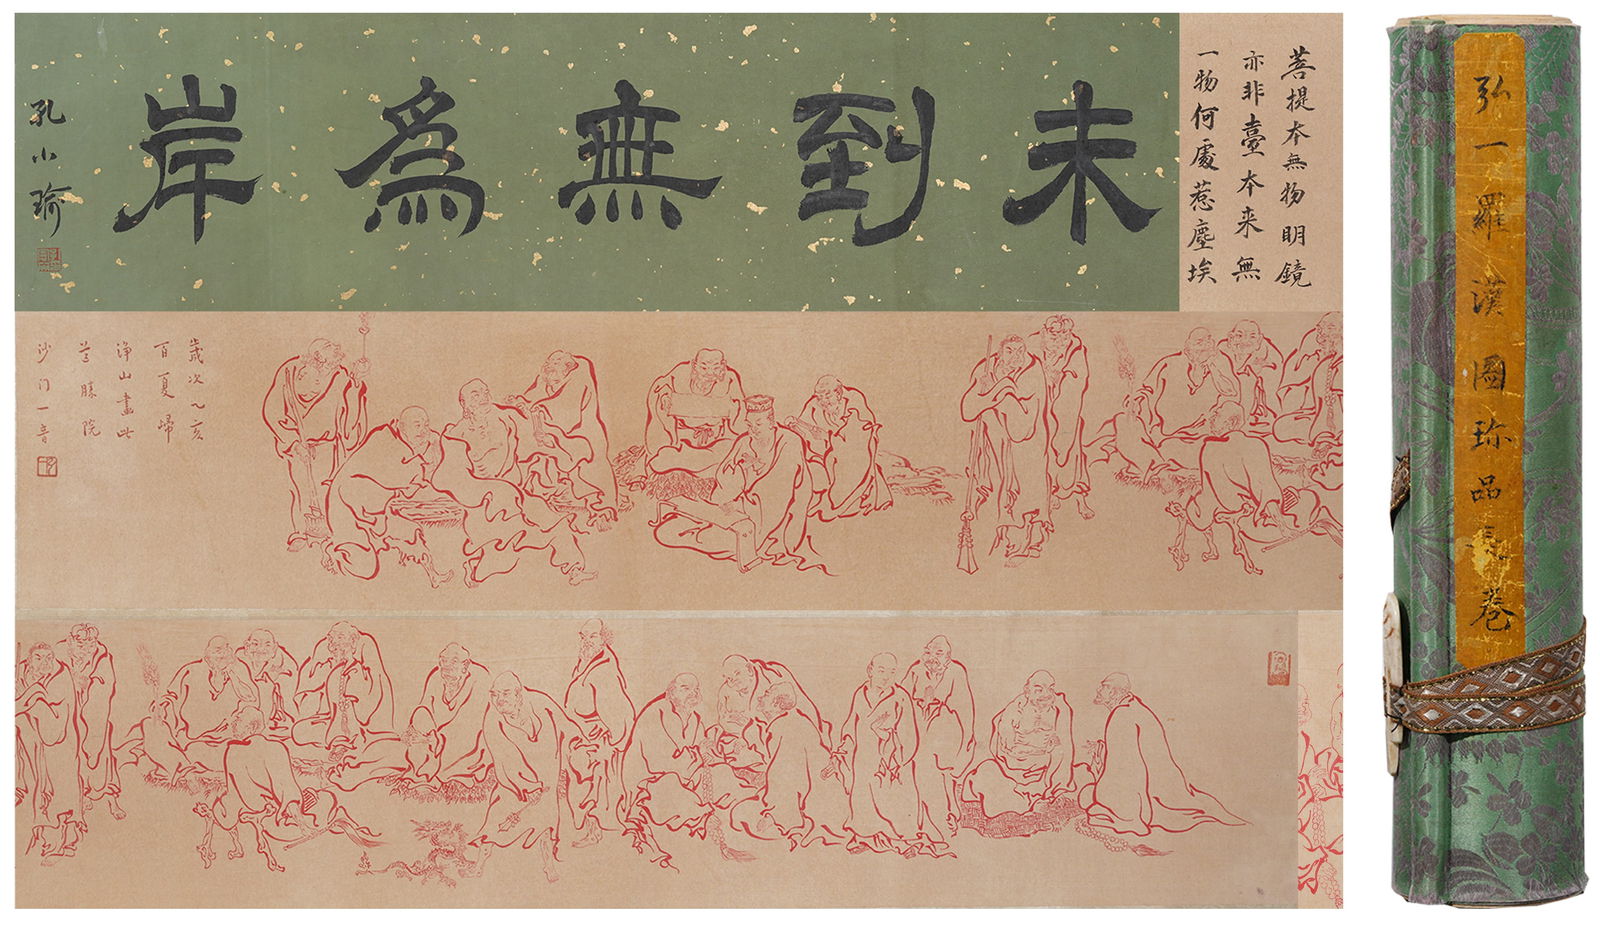 未到無爲岸
孔小瑜
菩提本無物明鏡
亦非臺本来無
一物何處惹塵埃
歲次乙亥
夏歸
淨山畫此
勝院
沙门一音
弘一羅漢圖珎品長卷